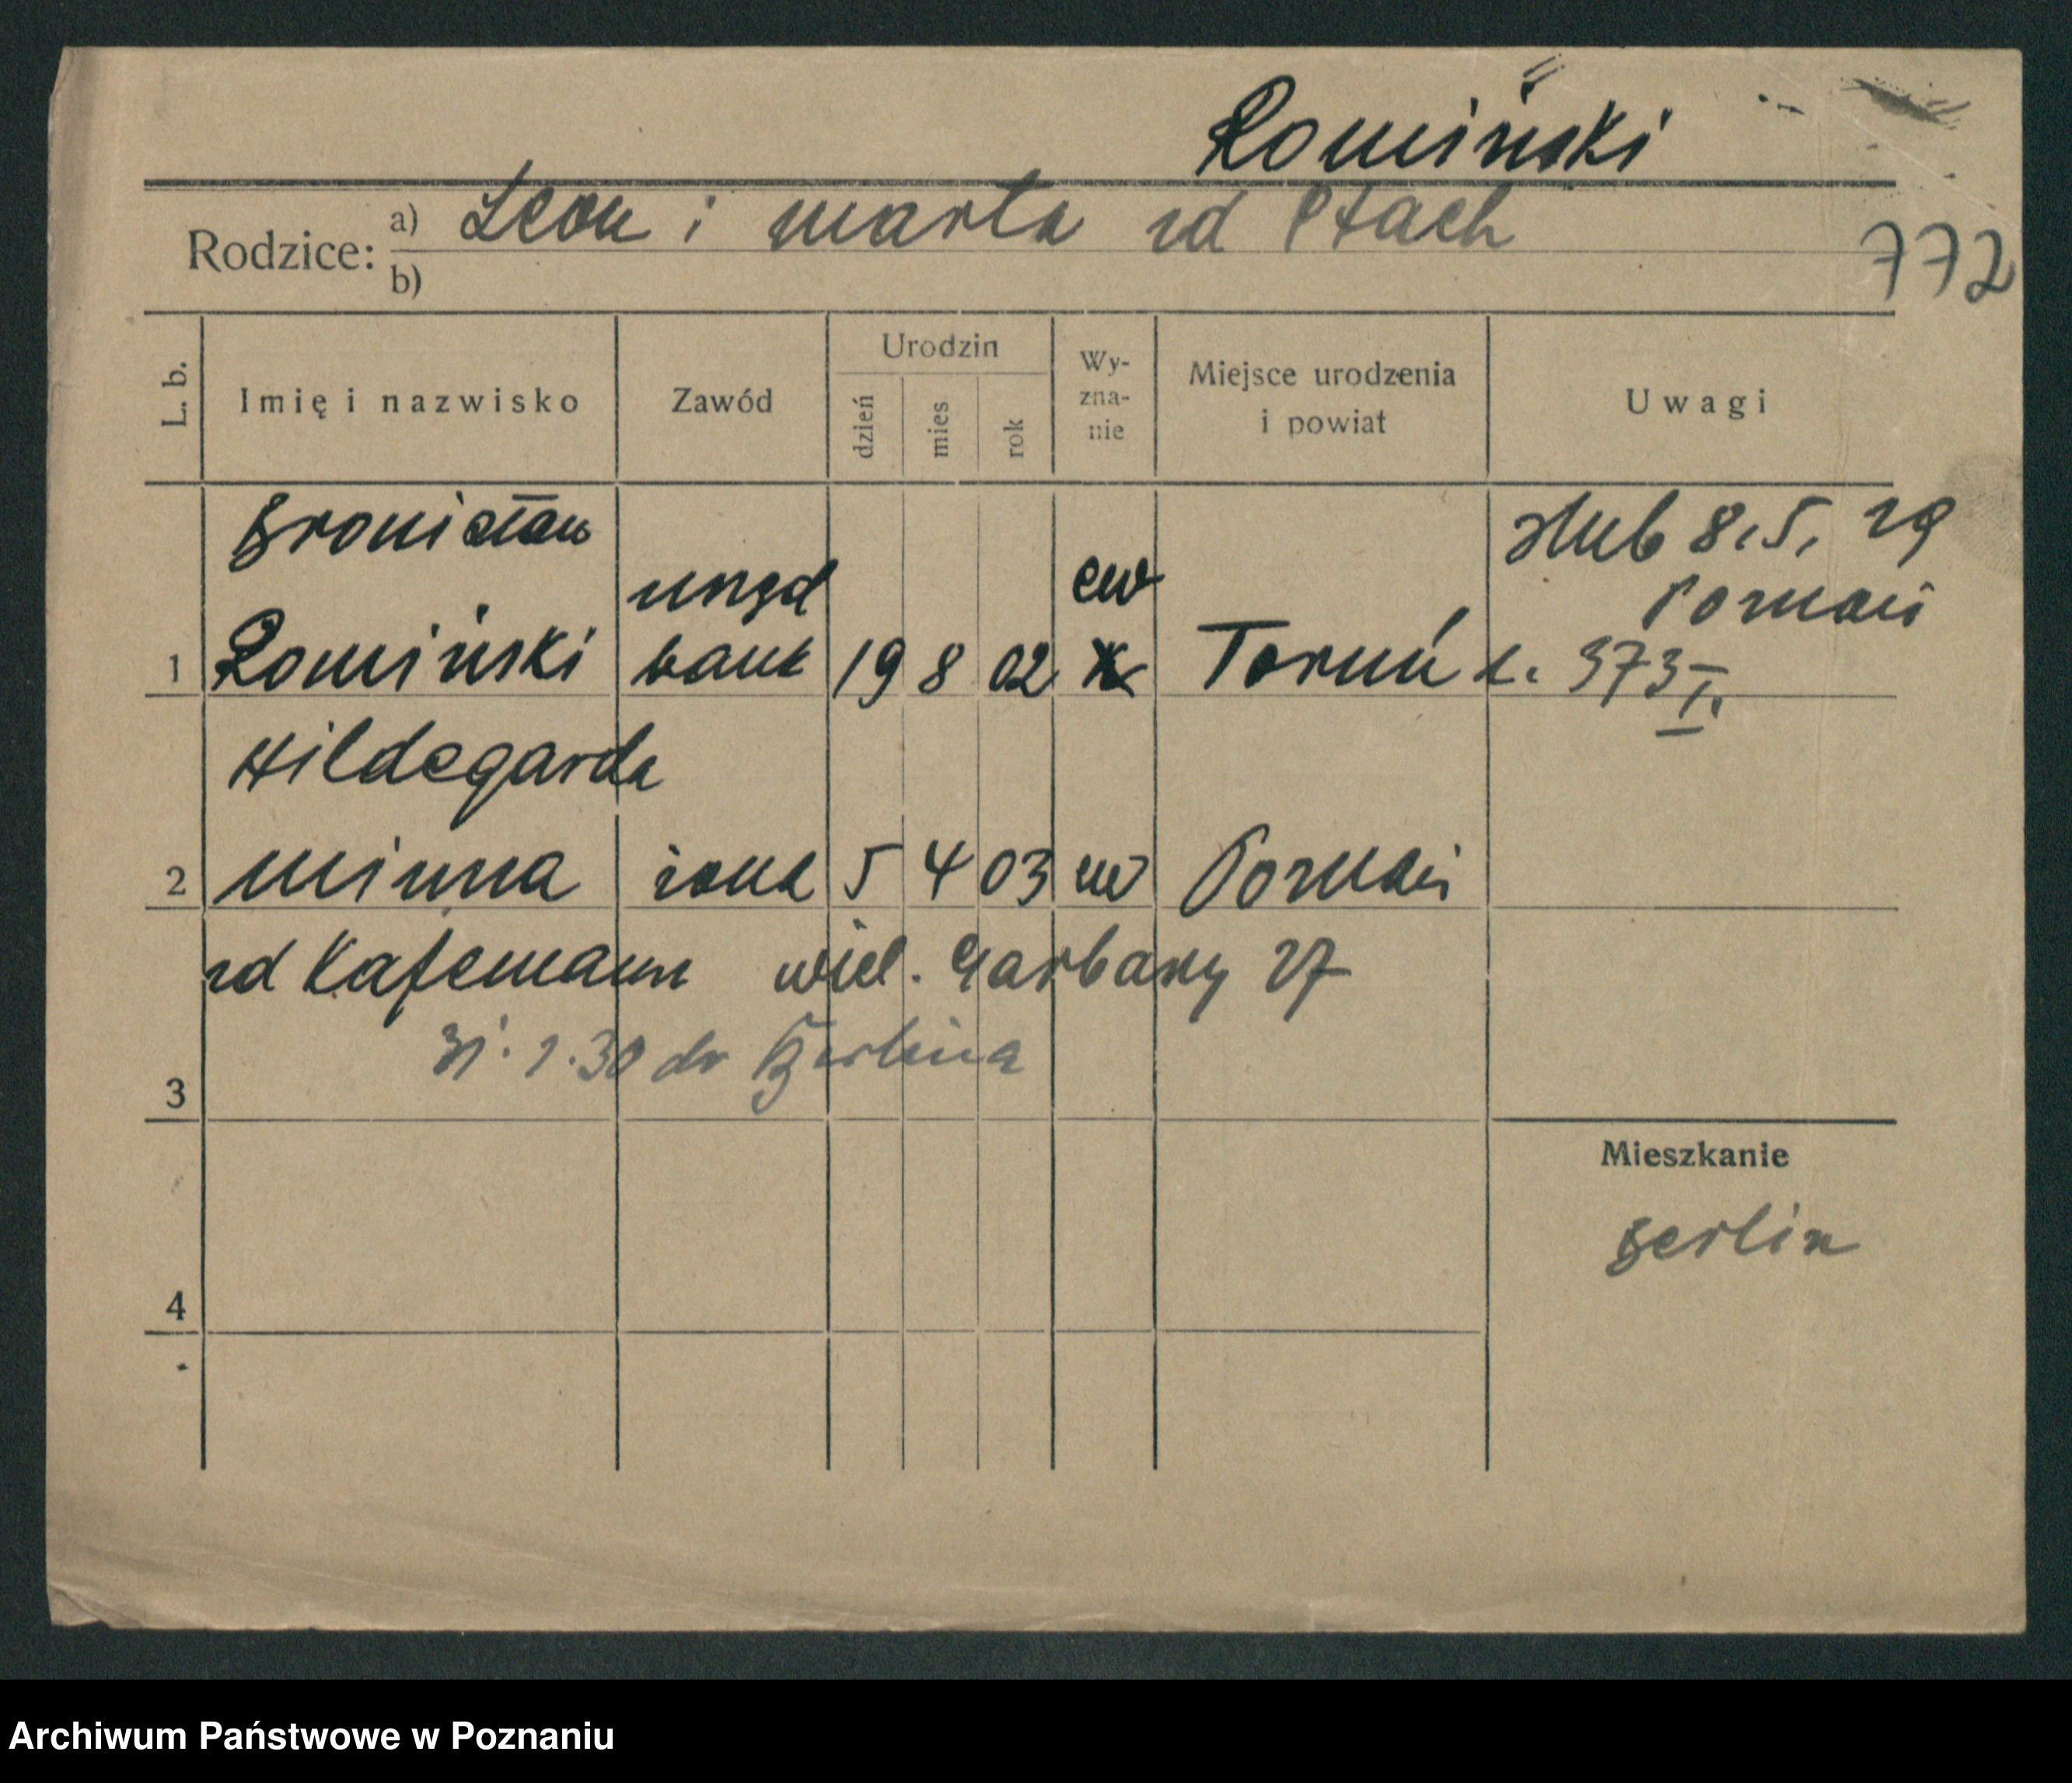 Łomiński
Rodzice: a) Leon i Marta zd Ptach
b)
772
L. b. Imię i nazwisko Zawód Urodzin dzień mies rok Wy-zna-nie Miejsce urodzenia i powiat Uwagi
Bronisław ślub 8.5. 29
urzęd ew Poznań
1 Łomiński bank 19 8 02 k Toruń l. 373 I.
Hildegarda
2 Minna żona 5 4 03 ew Poznań
zd Kafemann wiel. Garbary 27
31.1.30 do Berlina
3
Mieszkanie
Berlin
4
Archiwum Państwowe w Poznaniu